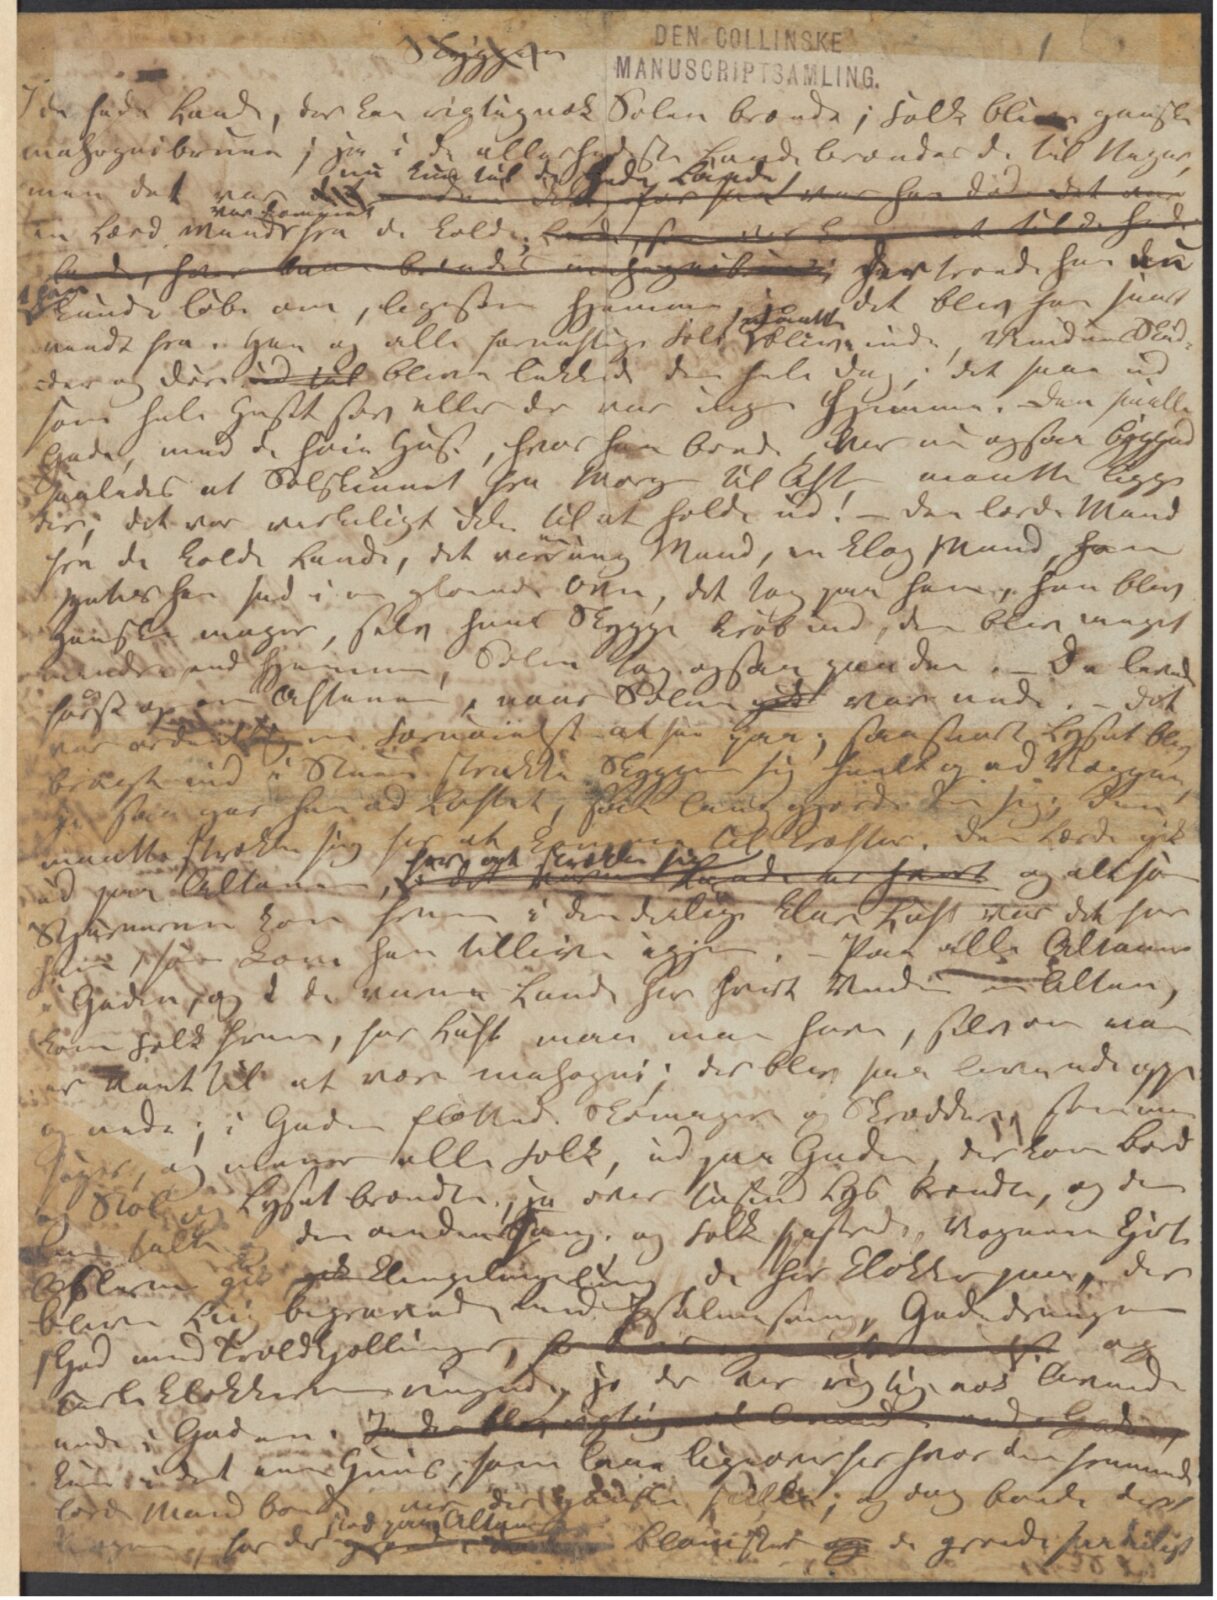 Skyggen
DEN COLLINSKE
MANUSCRIPTSAMLING.
1
I de hede Lande, der kan rigtignok Solen brænde; Folk blive ganske
mahognibrune; ja i de allerhedeste Lande brændes de til Negre,
nu kun til de hede Lande
men det var
var kommet
en lærd Mand fra de kolde, Lande, som var kommet til de hede
Lande, hvor han brændes mahognibrun; der troede han nu
at han
kunde løbe om, ligesom hjemme, jo det blev han snart
maatte
vendt fra. Han og alle fornuftige Folk blive inde, Vindues Skod-
der og Døre bleve lukkede den hele Dag; det saae ud
som hele Huset sov eller der var ingen hjemme. Den smalle
Gade, med de høie Huse, hvor han boede, var nu ogsaa bygget
saaledes at Solskinnet fra Morgen til Aften maatte ligge
der, det var virkeligt ikke til at holde ud! – Den lærde Mand
fra de kolde Lande, det var en ung Mand, en klog Mand, han
syntes han sad i en gloende Ovn, det tog paa ham, han blev
ganske mager, selv hans Skygge krøb ind, den blev meget
mindre end hjemme, Solen tog ogsaa paa den. – De levede
først op om Aftenen, naar Solen var nede. – Det
var en Fornøielse at see paa; saasnart Lyset blev
bragt ind i Stuen strakte Skyggen sig heelt op ad Væggen,
ja saa gar hen ad Loftet, saa lang gjorde den sig, den
maatte strække sig for at komme til Kræfter. Den Lærde gik
for at strække sig
ud paa Altanen, og altsom
Stjernerne kom frem i den deilige klare Luft var det for
ham, som kom han tillive igjen. – Paa alle Altaner
i Gaden, og i de varme Lande har hvert Vindue en Altan,
kom Folk frem, for Luft maa man have, selv om man
er vant til at være mahogni; der blev saa levende oppe
og nede; i Gaden flyttede Skomagere og Skræddere,
og alle Folk, ud paa Gaden, der kom Bord
og Stol og Lyset brændte, ja over tusind Lys brændte, og den
ene talte den anden sang, og Folk spadserede, Vognene kjørte
Æslerne gik klingelingeling, de har Klokker paa, der
bleve Liig begravede med Psalmesang, Gadedrengene
skjød med Troldkjællinger, og
Kirkeklokkerne ringede, jo der var rigtignok levende
nede i Gaden. Jo der blev rigtignok levende nede i Gaden,
kun i det ene Huus, som laae ligeoverfor hvor den fremmede
lærde Mand boede, var der ganske stille; og dog boede der
stod paa Altanen
Nogen, for der Blomster og de groede saa deiligt